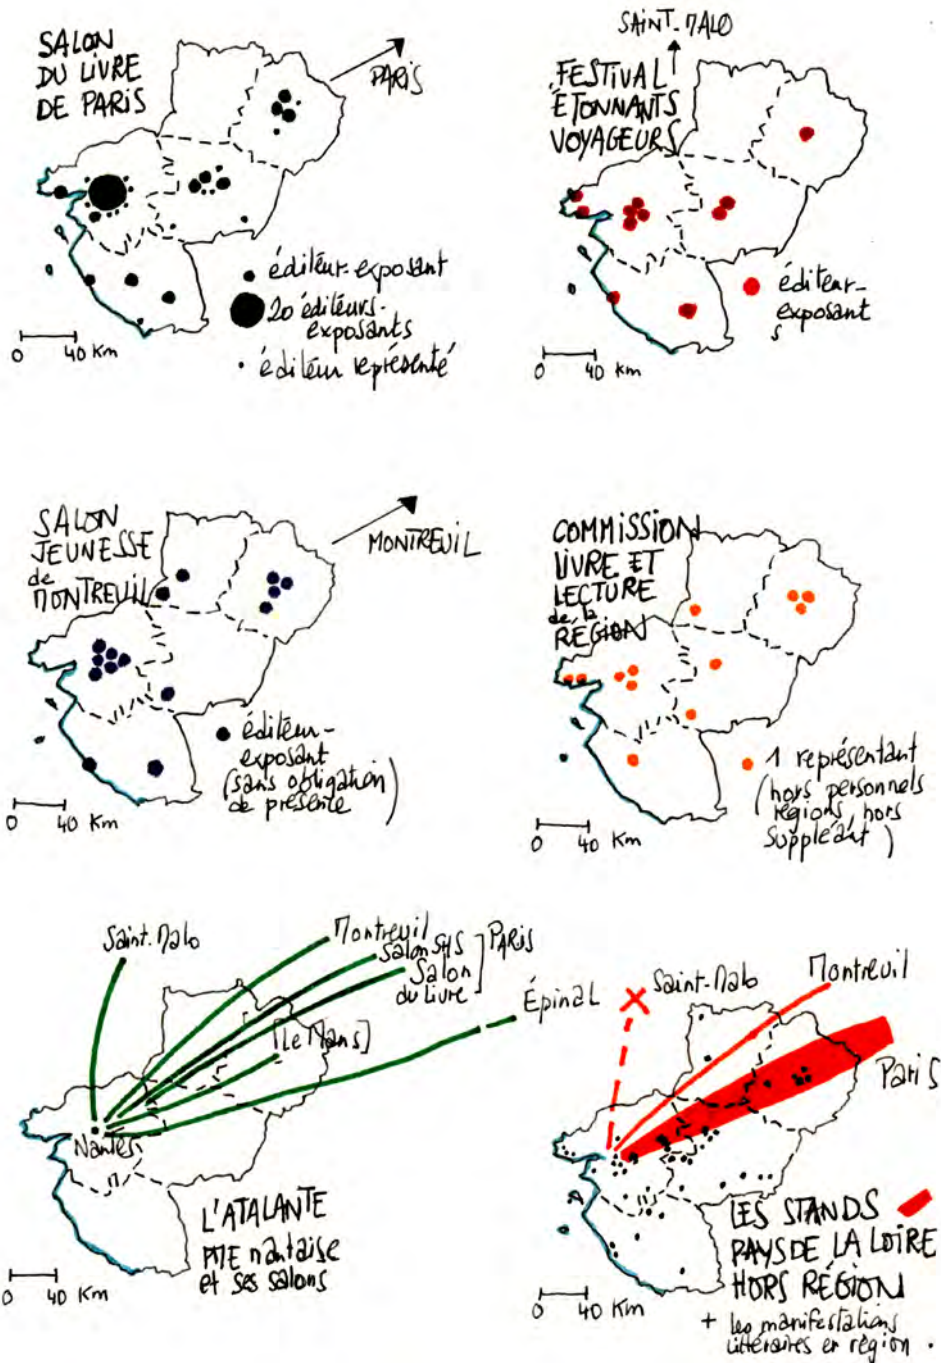 SALON
DU LIVRE
DE PARIS
PARIS
éditeur-exposant
20 éditeurs-
exposants
éditeur représenté
0 40 Km
SAINT-MALO
FESTIVAL
ÉTONNANTS
VOYAGEURS
éditeur-
exposant
s
0 40 Km
SALON
JEUNESSE
de
MONTREUIL
MONTREUIL
éditeur-
exposant
(sans obligation
de présence)
0 40 Km
COMMISSION
LIVRE ET
LECTURE
de la
RÉGION
1 représentant
(hors personnels
régions, hors
suppléant)
0 40 Km
Saint-Malo
Montreuil
Salon SHS
Salon
du Livre
PARIS
Épinal
[Le Mans]
Nantes
L'ATALANTE
PME nantaise
et ses salons
0 40 Km
Saint-Malo
Montreuil
Paris
LES STANDS
PAYS DE LA LOIRE
HORS RÉGION
+ les manifestations
littéraires en région .
0 40 Km